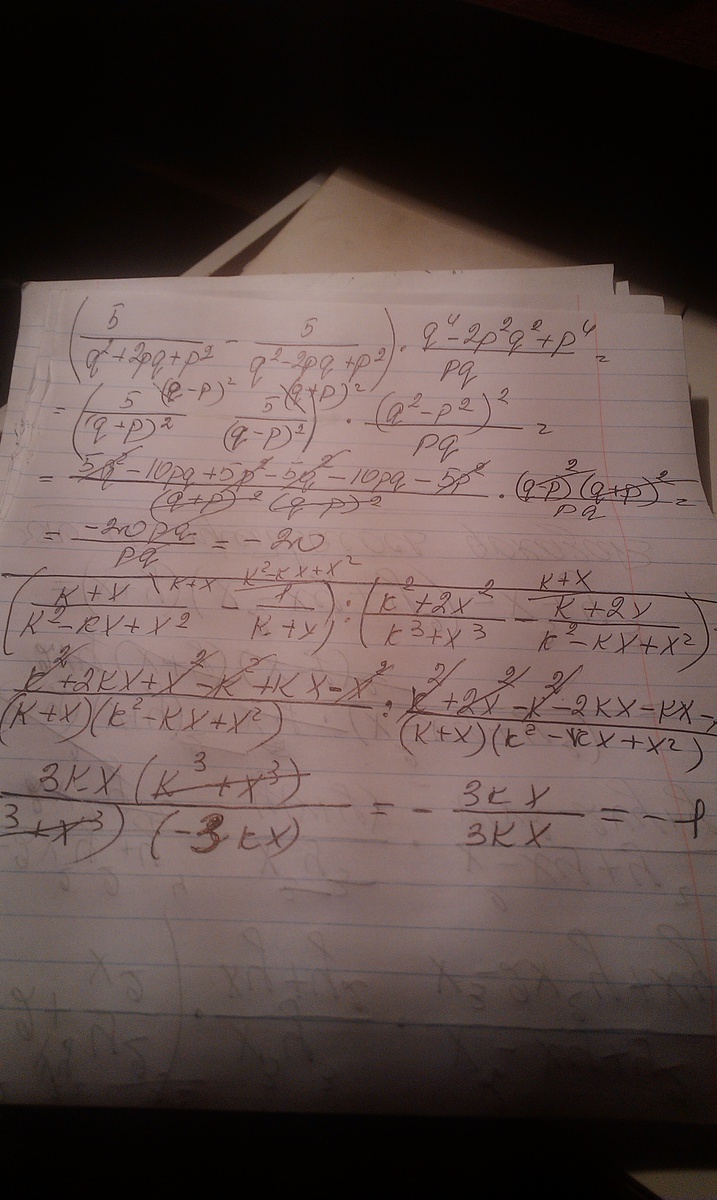 (5/(q²+2pq+p²) - 5/(q²-2pq+p²)) · (q⁴-2p²q²+p⁴)/pq =
= (5\(q-p)²/(q+p)² 5\(q+p)²/(q-p)²) · (q²-p²)²/pq =
= (5q²-10pq+5p²-5q²-10pq-5p²)/((q+p)²(q-p)²) · (q-p)²(q+p)²/pq =
= -20pq/pq = -20
((k+x)/(k²-kx+x²) \k+x - 1/(k+x) \k²-kx+x²) : ((k²+2x²)/(k³+x³) - (k+2x)/(k²-kx+x²) \k+x)
(k²+2kx+x²-k²+kx-x²)/((k+x)(k²-kx+x²)) : (k²+2x²-k²-2kx-kx-)/((k+x)(k²-kx+x²))
3kx(k³+x³)/(³+x³)(-3kx) = - 3kx/3kx = -1